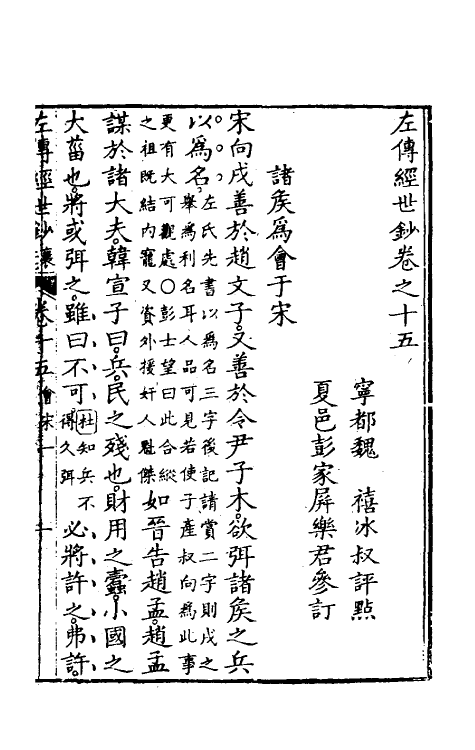 左傳經世鈔卷之十五
寧都魏　禧冰叔評點
夏邑彭家屏樂君參訂
諸矦為會于宋
宋向戌善於趙文子又善於令尹子木欲弭諸矦之兵
以為名左氏先書以為名三字後記請賞二字則戌之
舉為利名耳人品可見若使子產叔向為此事
更有大可觀處○彭士望曰此合縱
之祖既結內寵又資外援奸人魁傑如晉告趙孟趙孟
謀於諸大夫韓宣子曰兵民之殘也財用之蠹小國之
大菑也將或弭之雖曰不可杜知兵不
得久弭必將許之弗許
左傳經世鈔　卷十五會宋　一